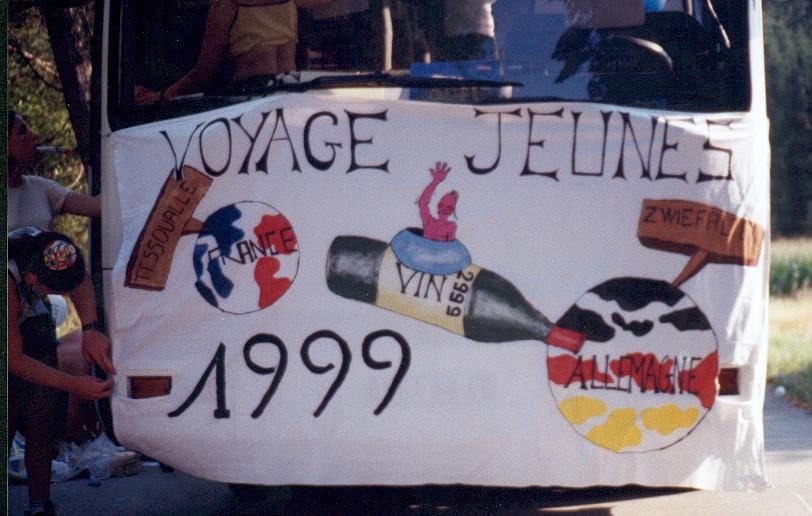 VOYAGE JEUNES
TESSOUALLE
FRANCE
VIN
ZWIEFAL
1999
ALLEMAGNE